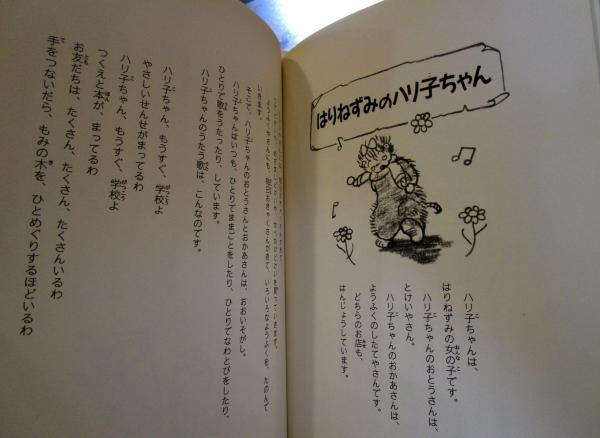 はりねずみのハリ子ちゃん
ハリ子ちゃんは、
はりねずみの女の子です。
ハリ子ちゃんのおとうさんは、
とけいやさん。
ハリ子ちゃんのおかあさんは、
ようふくのしたてやさんです。
どちらのお店も、
はんじょうしています。
ようふくやさんにも、毎日おきゃくさんがきて、いろいろなようふくを、たのんで
いきます。
そこで、ハリ子ちゃんのおとうさんとおかあさんは、おおいそがし。
ハリ子ちゃんはいつも、ひとりでままごとをしたり、ひとりでなわとびをしたり、
ひとりで歌をうたったり、しています。
ハリ子ちゃんのうたう歌は、こんなのです。
ハリ子ちゃん、もうすぐ、学校よ
やさしいせんせがまってるわ
ハリ子ちゃん、もうすぐ、学校よ
つくえと本が、まってるわ
お友だちは、たくさん、たくさん、たくさんいるわ
手をつないだら、もみの木を、ひとめぐりするほどいるわ